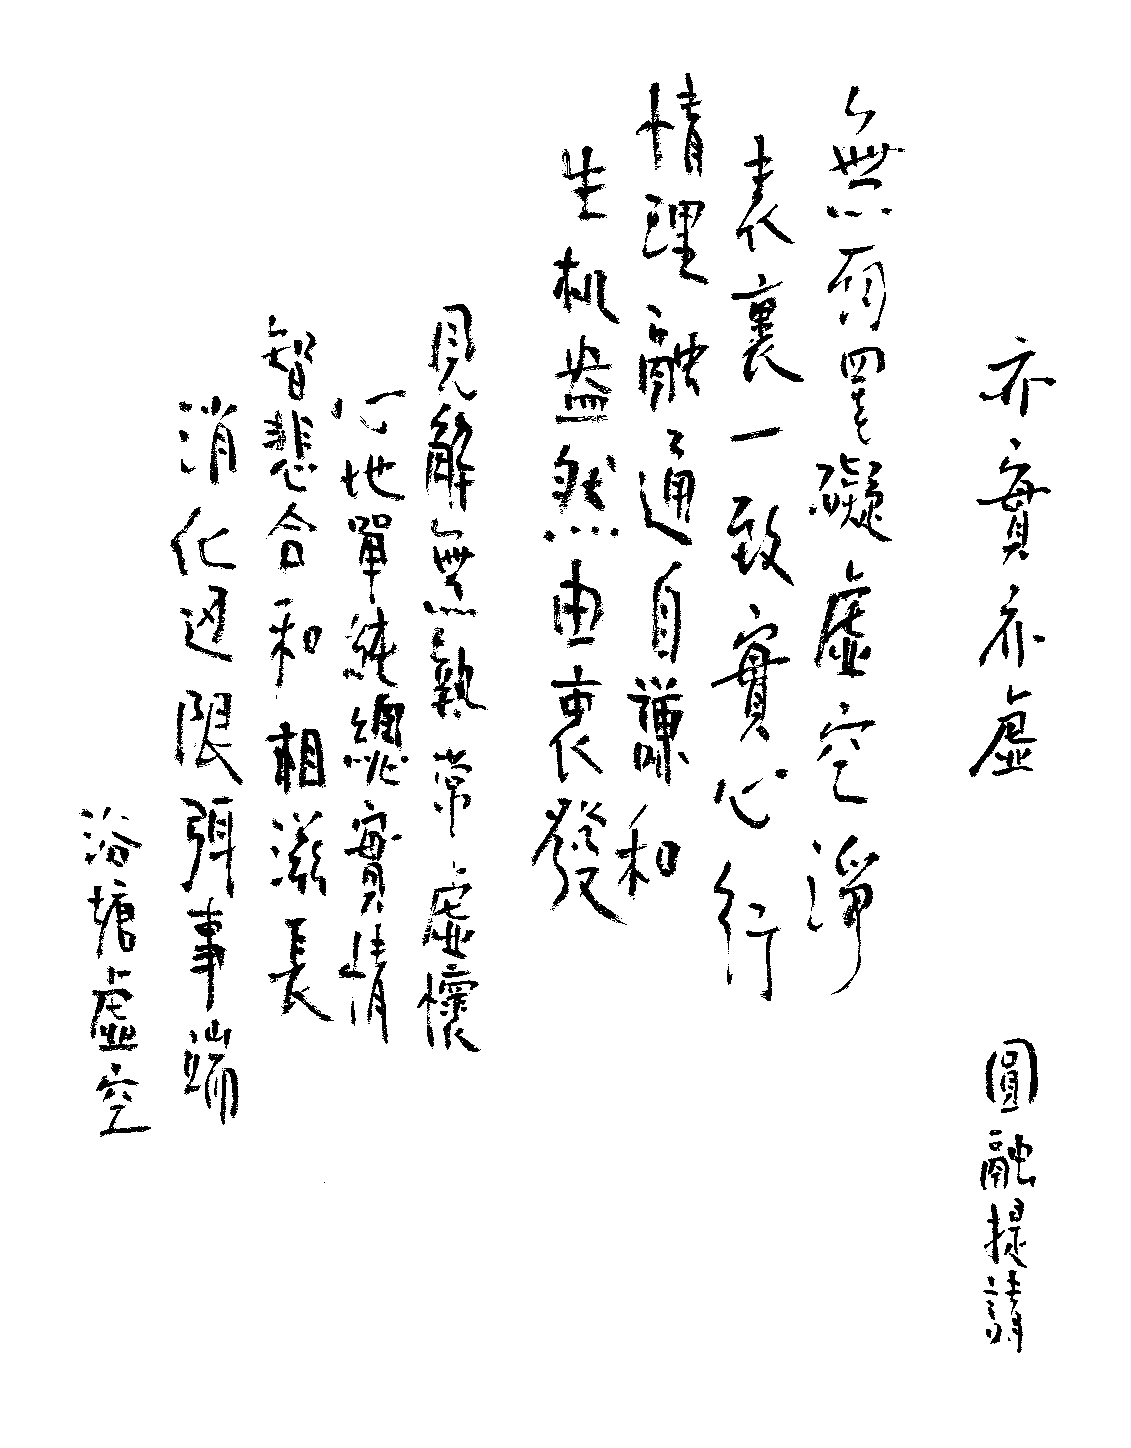 亦實亦虛
圓融提請
無有罣礙虛空淨
表裏一致實心行
情理融通自謙和
生机盎然由衷發
見解無執常虛懷
心地單純總實情
智悲合和相滋長
消化迅限弭事端
浴塘虛空